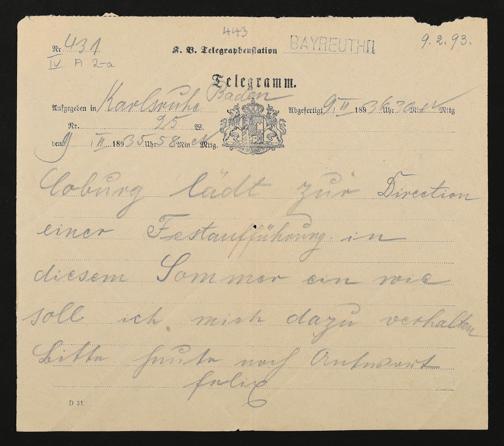 443
Nr 431
IV A 2-a
K. B. Telegraphenstation BAYREUTH
9. 2. 93.
Telegramm.
Aufgegeben in Karlsruhe Baden
Abgefertigt 9. II 1893 6 Uhr 30 Min Mttg
Nr. 925 W.
den 9 II 1893 5 Uhr 58 Min Mttg.
Coburg lädt zur Direction
einer Festaufführung in
diesem Sommer ein wie
soll ich mich dazu verhalten
Bitte heute noch Antwort
felix
D 31.